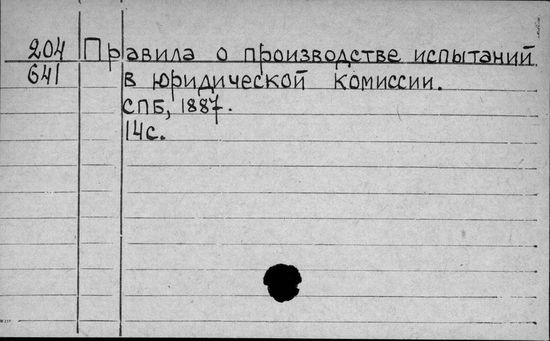 204 Правила о производстве испытаний
641 в юридической комиссии.
СПБ, 1887.
14с.